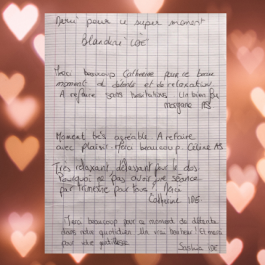 Merci pour ce super moment
Blandine IDE
Merci beaucoup Catherine pour ce beau
moment de détente et de relaxation.
A refaire sans hésitations. Un bien fou
morgane AS
Moment très agréable. A refaire
avec plaisir. Merci beaucoup. Céline AS
Très relaxant, délassant pour le dos
Pourquoi ne pas avoir une séance
par trimestre pour tous! Merci
Catherine IDE
Merci beaucoup pour ce moment de détente
dans notre quotidien. Un vrai bonheur! Et merci
pour votre gentillesse
IDE